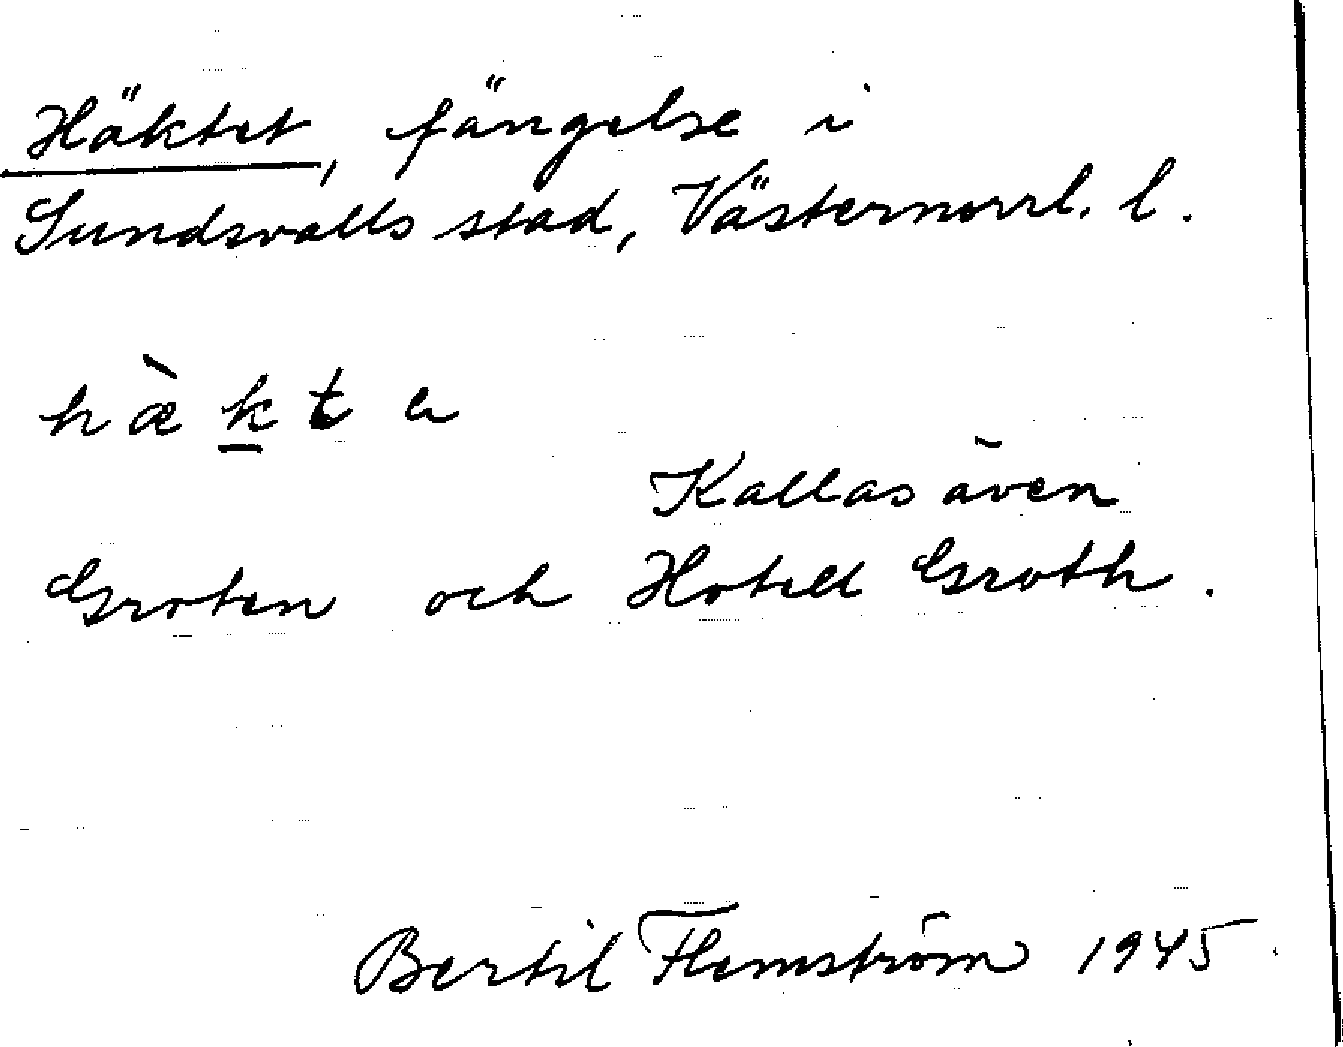 Häktet, fängelse i
Sundsvalls stad, Västernorrl. l.
hæ̀kte
Kallas även
Groten och Hotell Groth.
Bertil Flemström 1945